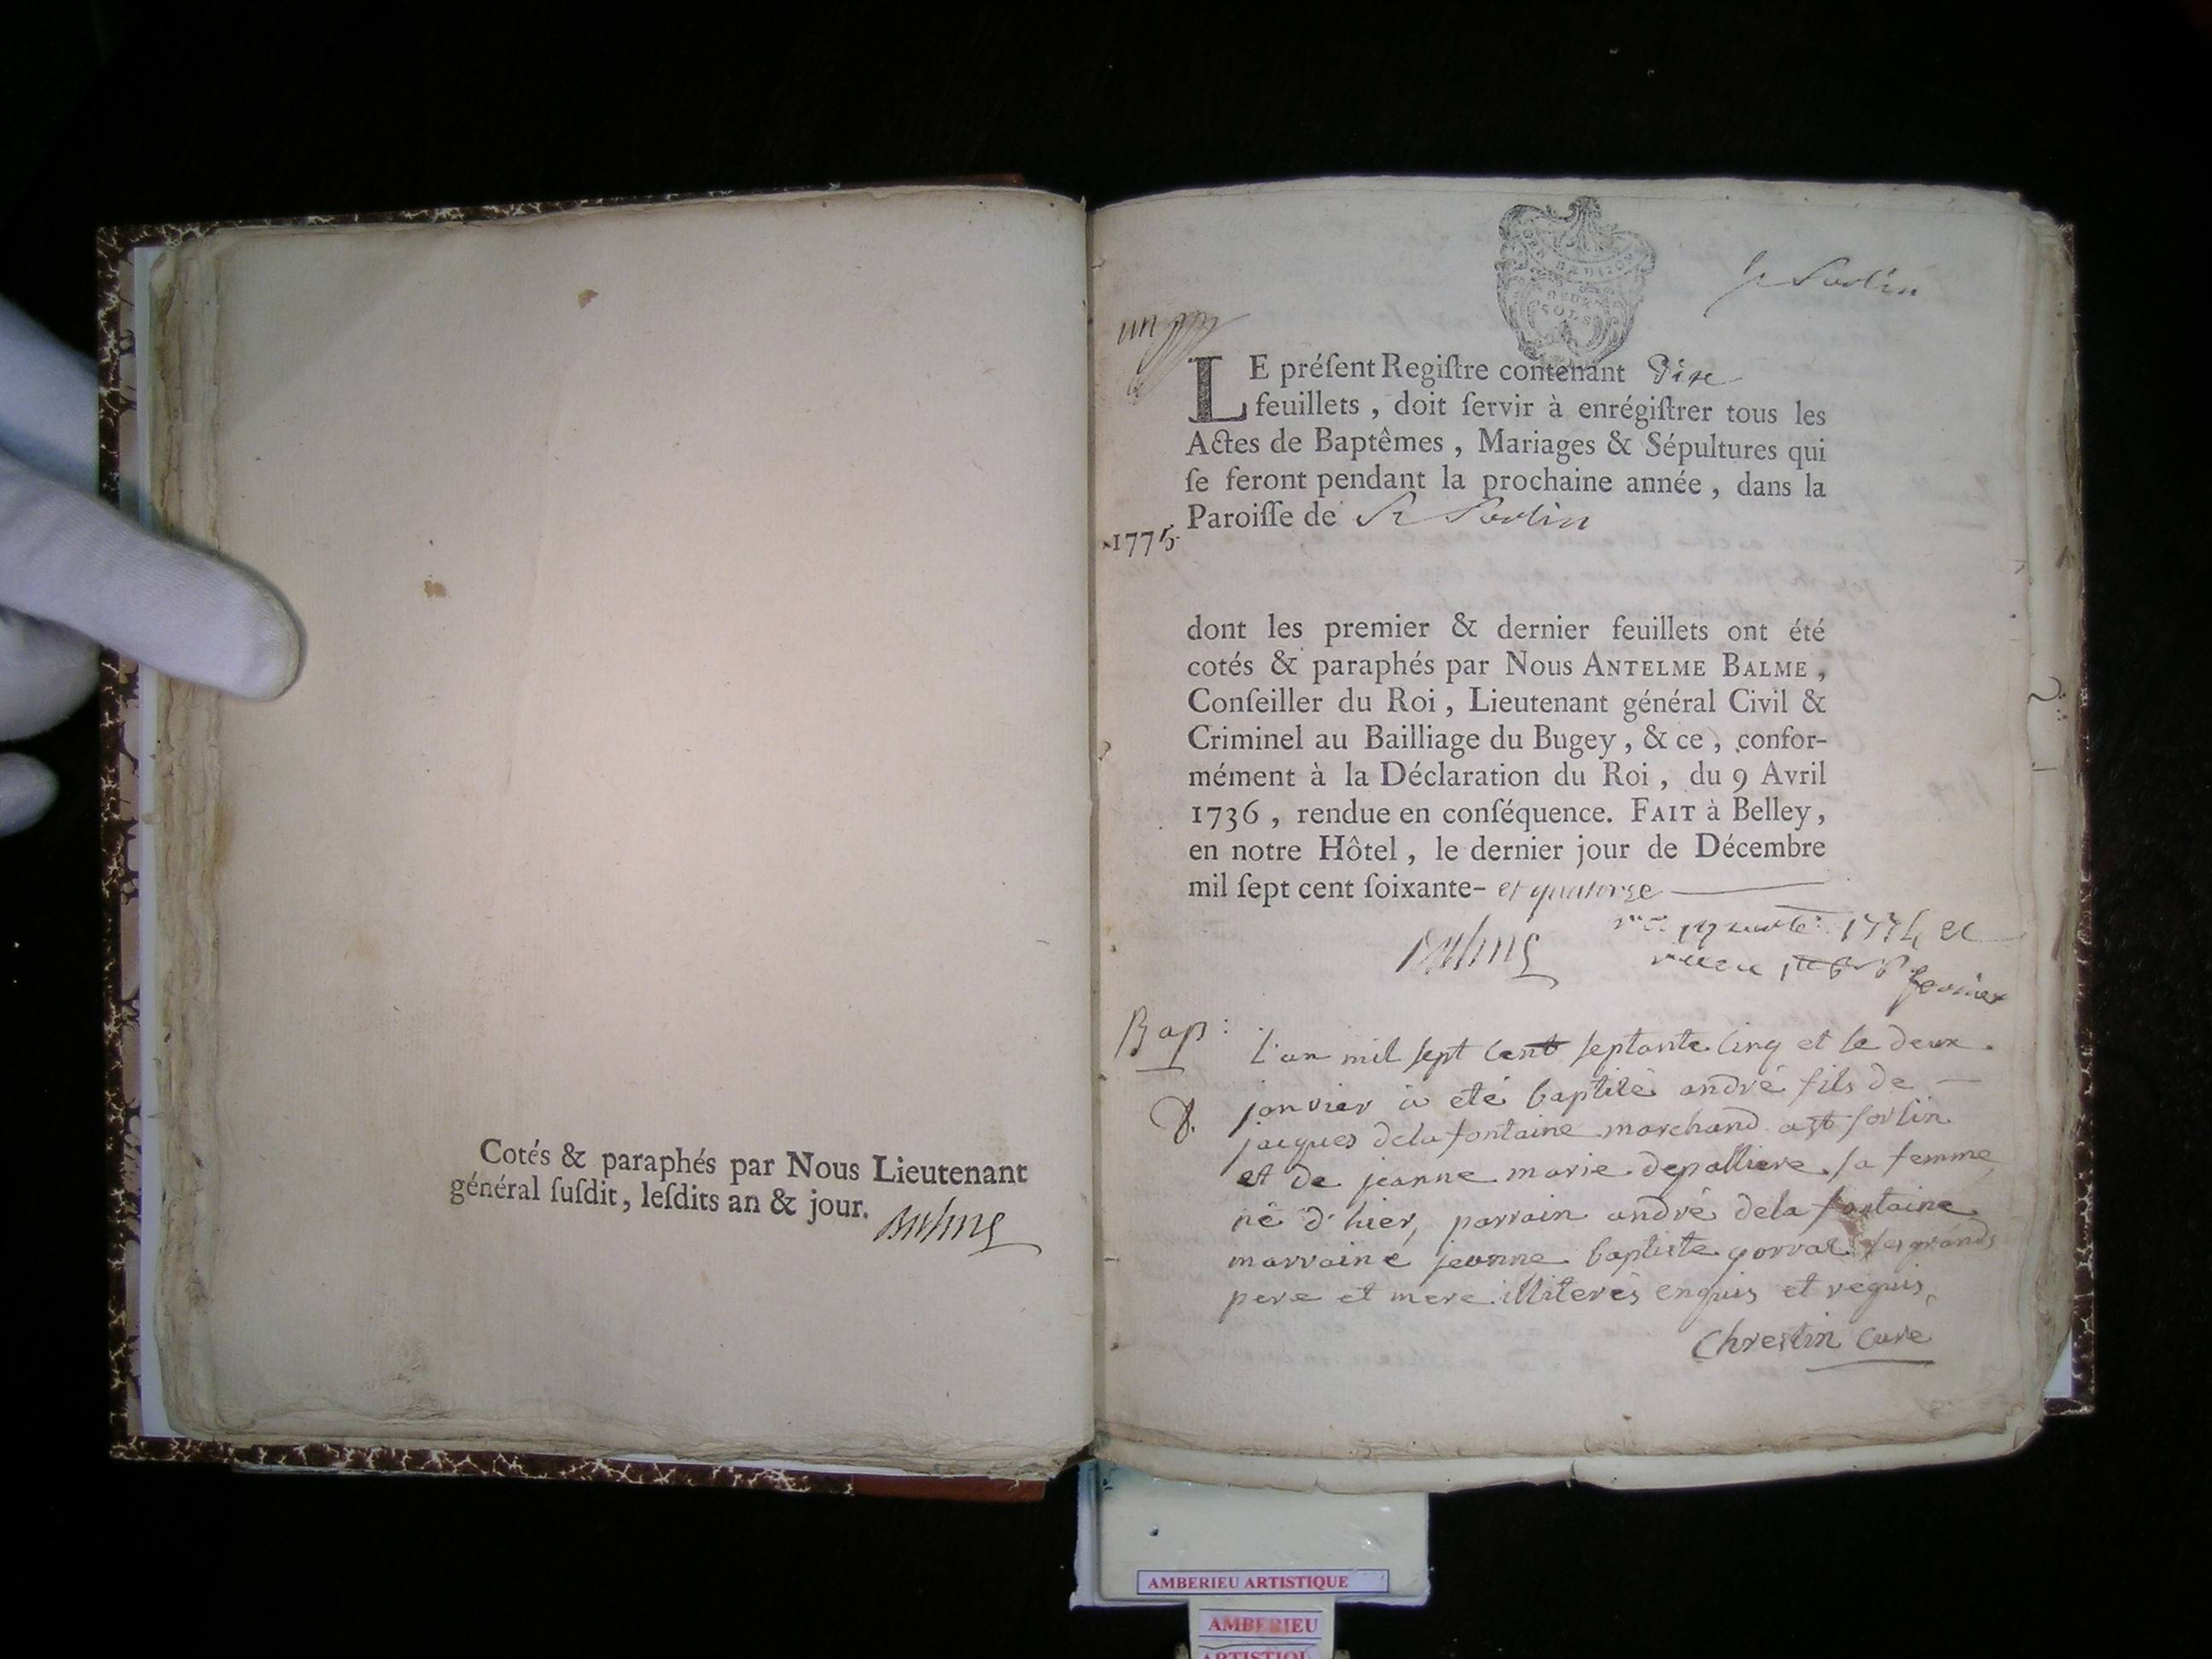 Cotés & paraphés par Nous Lieutenant
général ſuſdit, leſdits an & jour.
Balme
GEN BESITION
DEUX
SOLS
St Sorlin
un
LE préſent Regiſtre contenant dixe
feuillets, doit ſervir à enrégiſtrer tous les
Actes de Baptêmes, Mariages & Sépultures qui
ſe feront pendant la prochaine année, dans la
Paroiſſe de St Sorlin
1775.
dont les premier & dernier feuillets ont été
cotés & paraphés par Nous ANTELME BALME,
Conſeiller du Roi, Lieutenant général Civil &
Criminel au Bailliage du Bugey, & ce, confor-
mément à la Déclaration du Roi, du 9 Avril
1736, rendue en conſéquence. FAIT à Belley,
en notre Hôtel, le dernier jour de Décembre
mil ſept cent ſoixante- et quatorze
1774 et
Balme
fevrier
Bap:
L'an mil sept cent septante cinq et le deux
janvier a eté baptisé andré fils de
jacques dela fontaine marchand a st sorlin
et de jeanne marie depalliere sa femme
né d'hier, parrain andré dela fontaine
marraine jeanne baptiste gorraz ses grands
pere et mere illiterés enquis et requis,
Chrestin Curé
AMBERIEU ARTISTIQUE
AMBERIEU
ARTISTIQUE